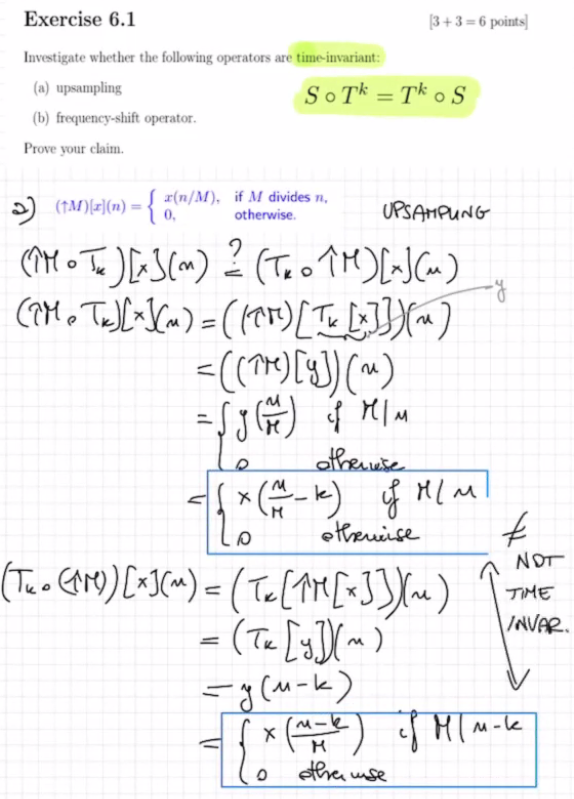 Exercise 6.1 [3 + 3 = 6 points]
Investigate whether the following operators are time-invariant:
(a) upsampling
S ∘ T^k = T^k ∘ S
(b) frequency-shift operator.
Prove your claim.
a) (↑M)[x](n) = { x(n/M), if M divides n,
0, otherwise.
UPSAMPLING
(↑M ∘ T_k)[x](n) ?= (T_k ∘ ↑M)[x](n)
(↑M ∘ T_k)[x](n) = ((↑M)[T_k[x]])(n) y
= ((↑M)[y])(n)
= { y(n/M) if M|n
0 otherwise
= { x(n/M - k) if M|n
0 otherwise
≠
NOT
TIME
INVAR.
(T_k ∘ (↑M))[x](n) = (T_k[↑M[x]])(n)
= (T_k[y])(n)
= y(n-k)
= { x((n-k)/M) if M|n-k
0 otherwise